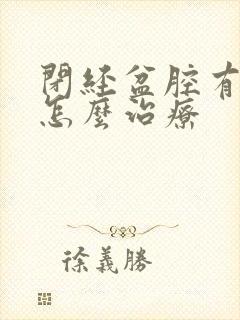 閉經盆腔有
怎麼治療
徐義勝